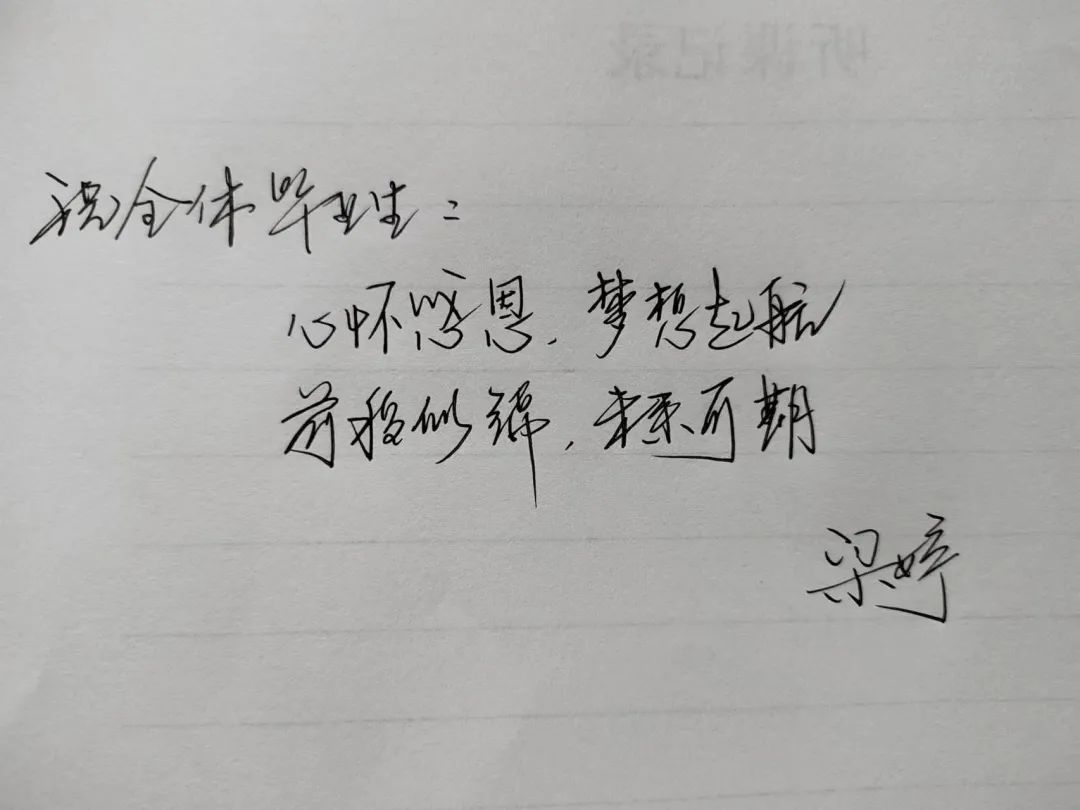 听课记录
祝全体毕业生：
心怀感恩，梦想起航
前程似锦，未来可期
梁婷